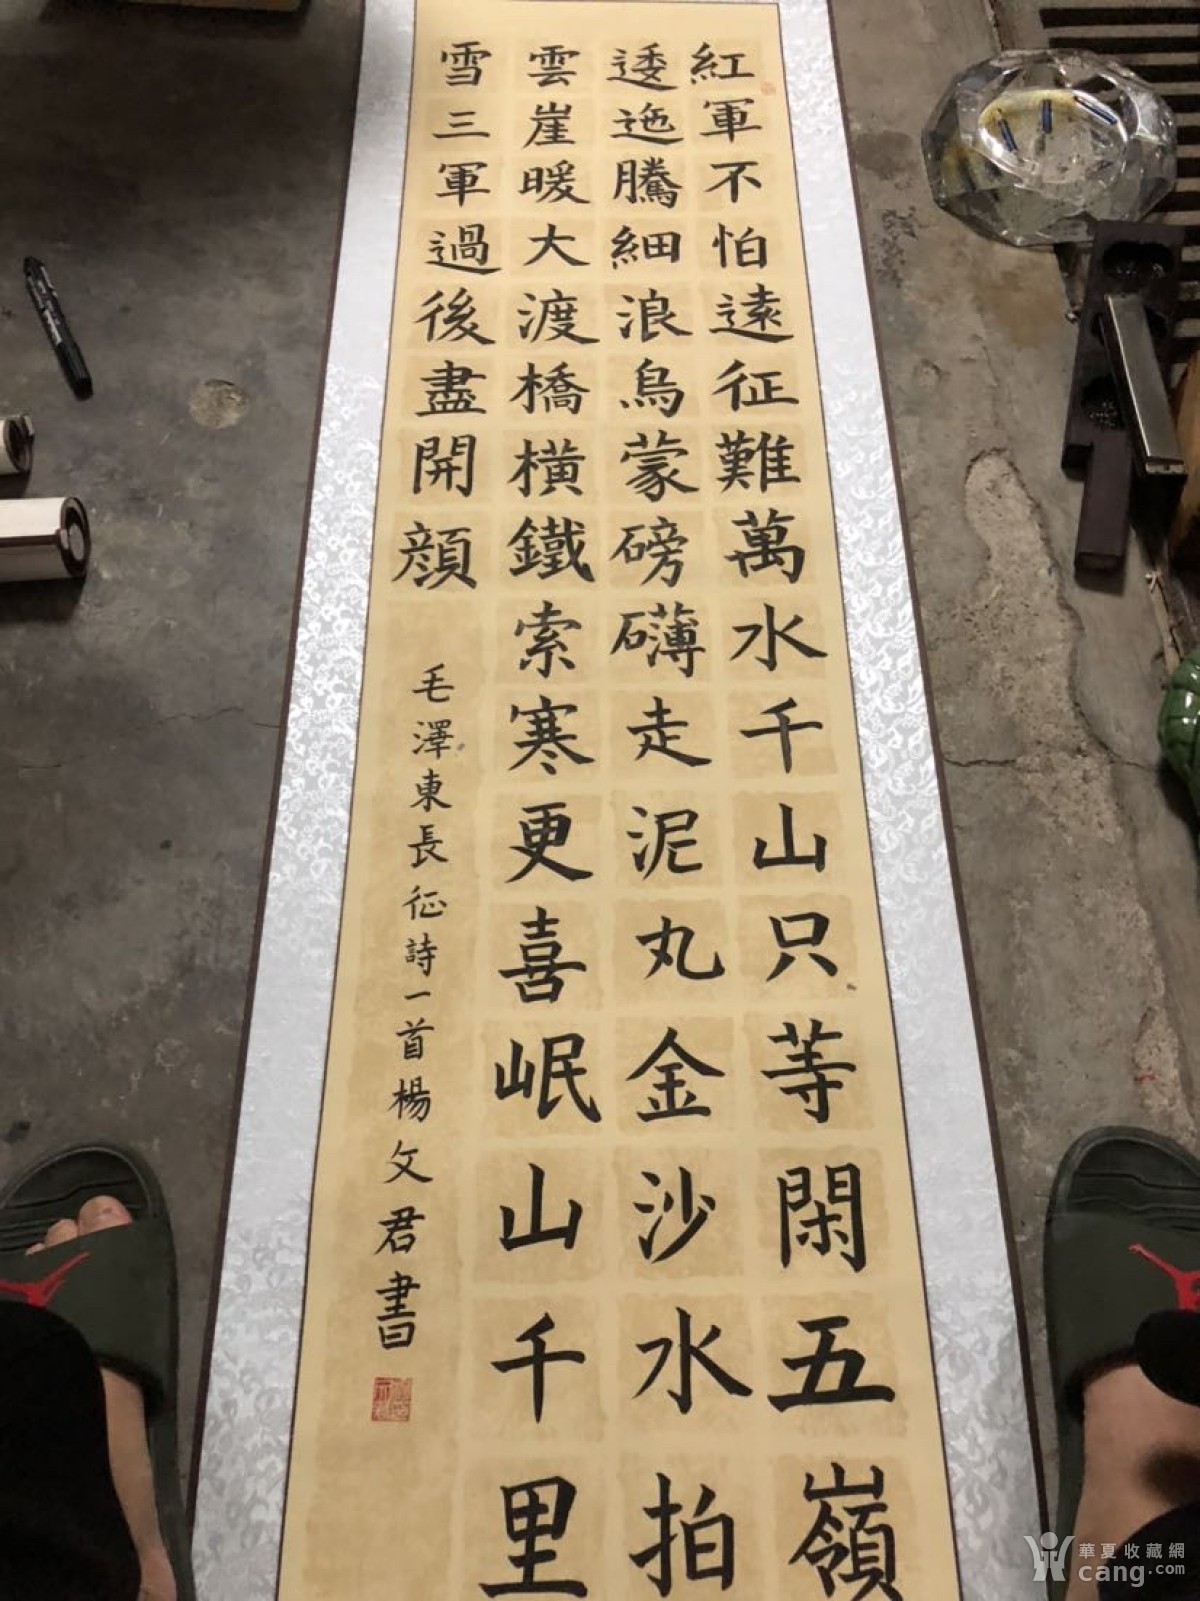 紅軍不怕遠征難萬水千山只等閑五嶺
逶迤騰細浪烏蒙磅礴走泥丸金沙水拍
雲崖暖大渡橋橫鐵索寒更喜岷山千里
雪三軍過後盡開顔
毛澤東長征詩一首楊文君書
華夏收藏網
cang.com